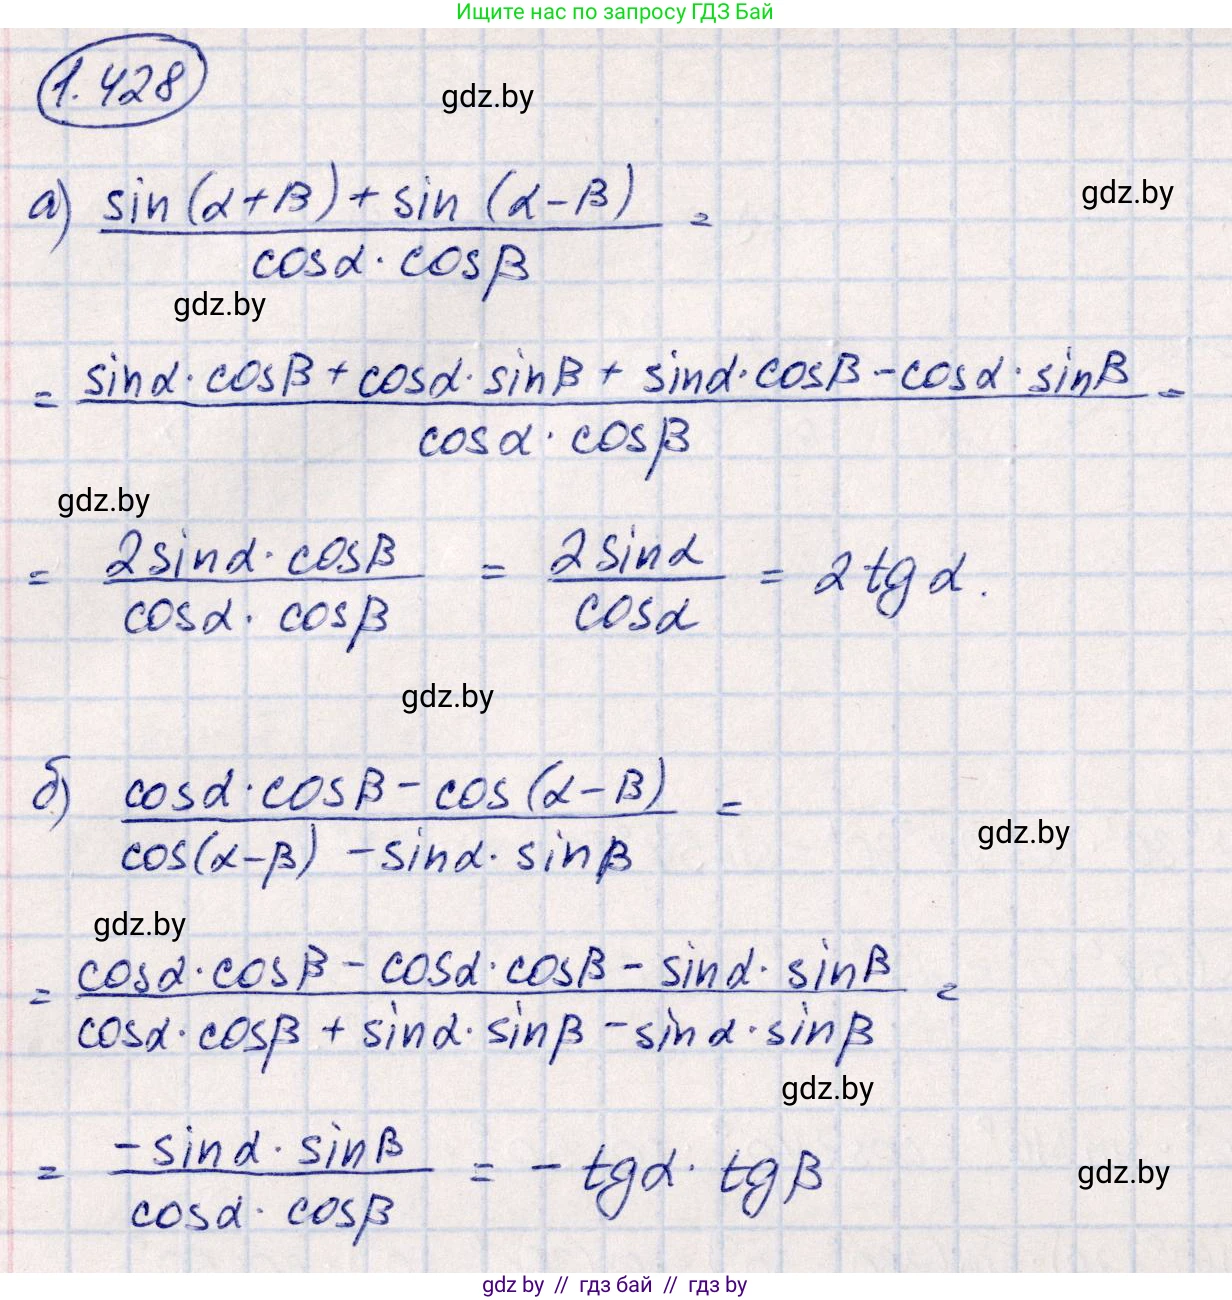 Ищите нас по запросу ГДЗ Бай
1.428
gdz.by
а) \frac{sin(α+β)+sin(α-β)}{cosα·cosβ} =
gdz.by
gdz.by
= \frac{sinα·cosβ+cosα·sinβ+sinα·cosβ-cosα·sinβ}{cosα·cosβ} =
gdz.by
= \frac{2sinα·cosβ}{cosα·cosβ} = \frac{2sinα}{cosα} = 2tgα.
gdz.by
б) \frac{cosα·cosβ-cos(α-β)}{cos(α-β)-sinα·sinβ} =
gdz.by
gdz.by
= \frac{cosα·cosβ-cosα·cosβ-sinα·sinβ}{cosα·cosβ+sinα·sinβ-sinα·sinβ} =
gdz.by
= \frac{-sinα·sinβ}{cosα·cosβ} = -tgα·tgβ
gdz.by
gdz by // гдз бай // гдз by